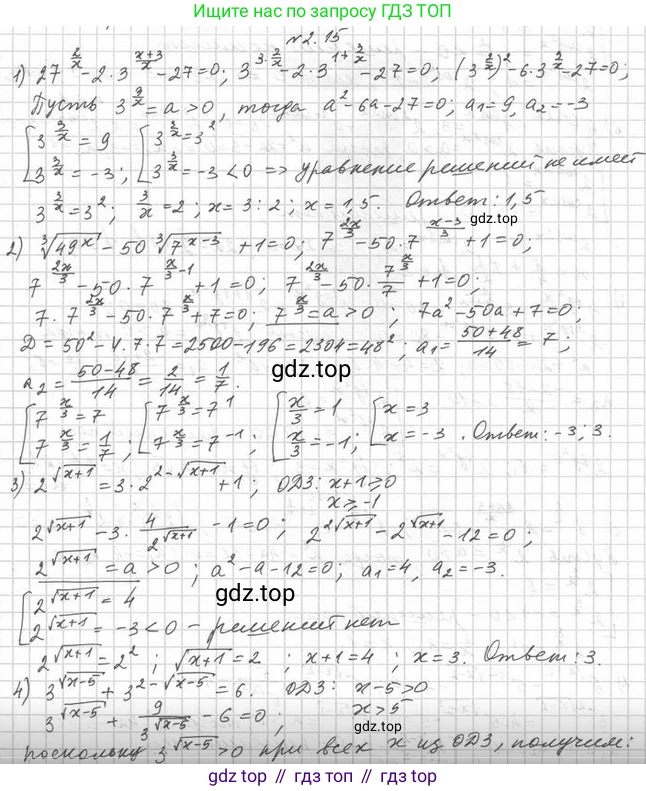 Ищите ещё больше решений на GDZ.TOP
и по запросу ГДЗ ТОП
№2.15
1) 27^(2/x) - 2·3^((x+3)/x) - 27 = 0; 3^(3·2/x) - 2·3^(1+3/x) - 27 = 0; (3^(3/x))² - 6·3^(3/x) - 27 = 0;
Пусть 3^(3/x) = a > 0, тогда a² - 6a - 27 = 0; a₁ = 9, a₂ = -3
[3^(3/x) = 9 [3^(3/x) = 3²
3^(3/x) = -3; 3^(3/x) = -3 < 0 => уравнение решений не имеет
3^(3/x) = 3²; 3/x = 2; x = 3 : 2; x = 1,5. Ответ: 1,5
gdz.top
2) ∛(49^x) - 50 ∛(7^(x-3)) + 1 = 0; 7^(2x/3) - 50·7^((x-3)/3) + 1 = 0;
7^(2x/3) - 50·7^(x/3-1) + 1 = 0; 7^(2x/3) - 50·7^(x/3)/7 + 1 = 0;
7·7^(2x/3) - 50·7^(x/3) + 7 = 0; 7^(x/3) = a > 0; 7a² - 50a + 7 = 0;
D = 50² - 4·7·7 = 2500 - 196 = 2304 = 48²; a₁ = (50+48)/14 = 7;
a₂ = (50-48)/14 = 2/14 = 1/7.
gdz.top
[7^(x/3) = 7 [7^(x/3) = 7¹ [x/3 = 1 [x = 3
7^(x/3) = 1/7; 7^(x/3) = 7^(-1); x/3 = -1; x = -3. Ответ: -3; 3.
3) 2^√(x+1) = 3·2^(2-√(x+1)) + 1; ОДЗ: x+1 ≥ 0
x ≥ -1
2^√(x+1) - 3·4/2^√(x+1) - 1 = 0; 2^(2√(x+1)) - 2^√(x+1) - 12 = 0;
2^√(x+1) = a > 0; a² - a - 12 = 0; a₁ = 4, a₂ = -3.
gdz.top
[2^√(x+1) = 4
2^√(x+1) = -3 < 0 - решений нет
2^√(x+1) = 2²; √(x+1) = 2; x+1 = 4; x = 3. Ответ: 3.
4) 3^√(x-5) + 3^(2-√(x-5)) = 6. ОДЗ: x-5 > 0
x > 5
3^√(x-5) + 9/3^√(x-5) - 6 = 0;
gdz.top
поскольку 3^√(x-5) > 0 при всех x из ОДЗ, получим:
gdz top // гдз топ // gdz.top